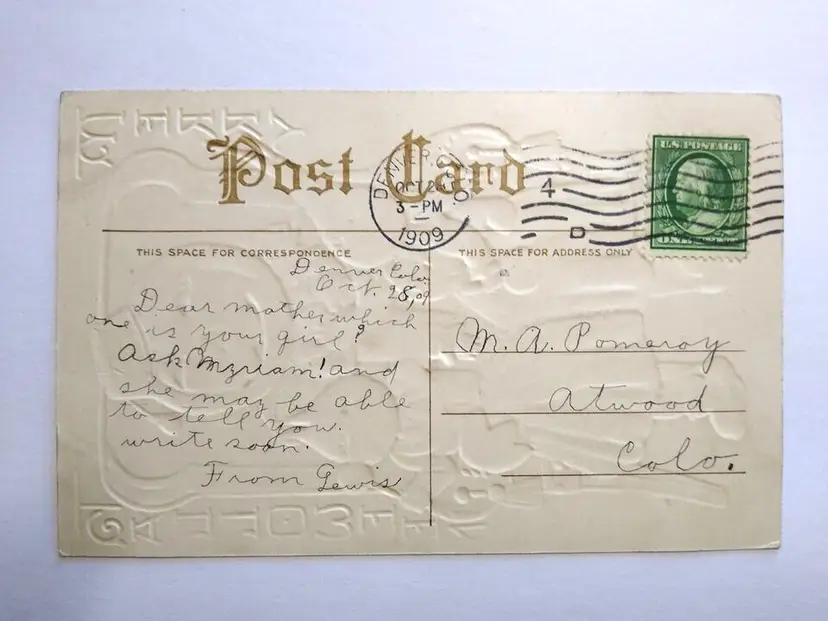 Post Card
DENVER, COLO.
OCT 28
3-PM
1909
4
D
U.S. POSTAGE
ONE CENT
THIS SPACE FOR CORRESPONDENCE
THIS SPACE FOR ADDRESS ONLY
Denver Colo.
Oct. 28, 09
Dear mother which
one is your girl?
Ask Myriam! and
she may be able
to tell you.
write soon.
From Lewis
M. A. Pomeroy
Atwood
Colo.
MERRY
HALLOWE'EN